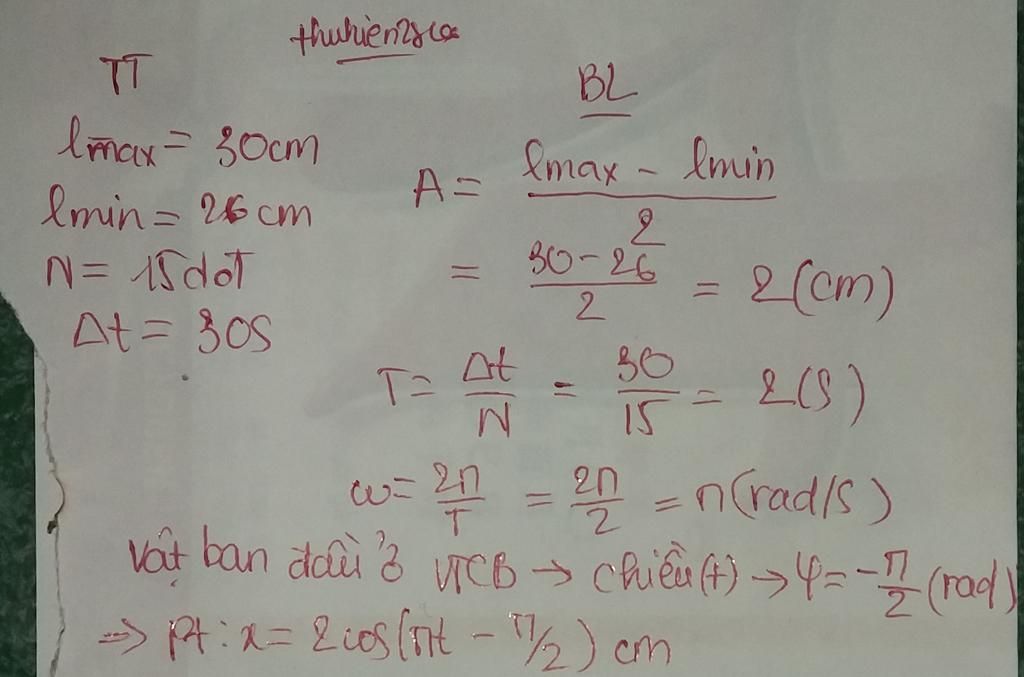 thuhien28ca
TT
lmax = 30cm
lmin = 26 cm
N = 15 dđT
Δt = 30s
BL
A = (lmax - lmin)/2
= (30-26)/2 = 2(cm)
T = Δt/N = 30/15 = 2(s)
ω = 2π/T = 2π/2 = π(rad/s)
Vật ban đầu ở VTCB → chiều(+) → φ = -π/2 (rad)
=> Pt: x = 2cos(πt - π/2) cm